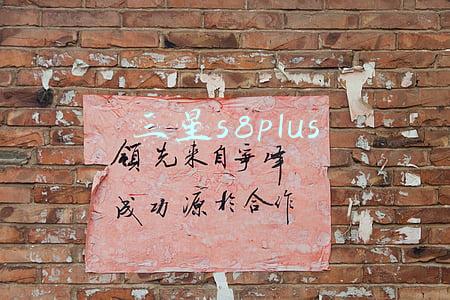 三星s8plus
領先来自争峰
成功源於合作